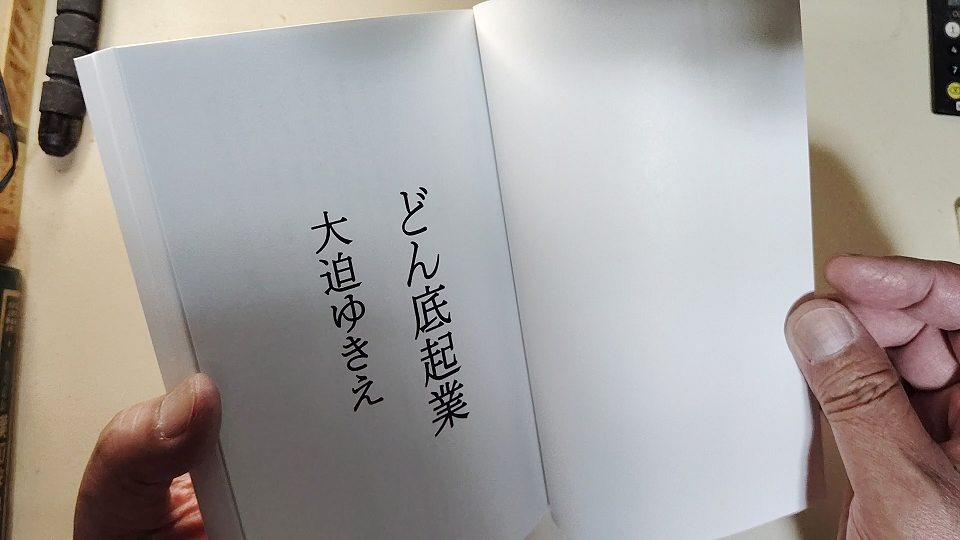 どん底起業
大迫ゆきえ